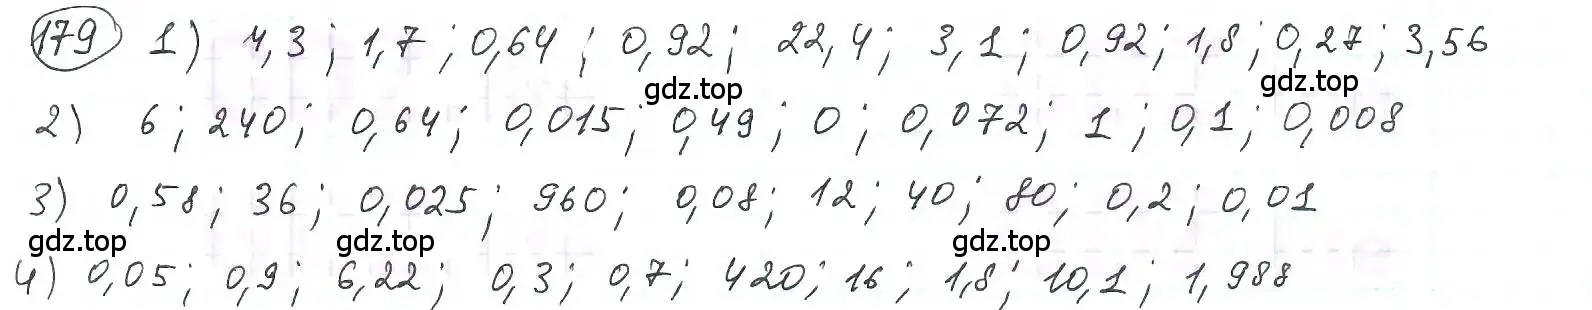 179 1) 4,3; 1,7; 0,64; 0,92; 22,4; 3,1; 0,92; 1,8; 0,27; 3,56
gdz.top gdz.top
2) 6; 240; 0,64; 0,015; 0,49; 0; 0,072; 1; 0,1; 0,008
3) 0,58; 36; 0,025; 960; 0,08; 12; 40; 80; 0,2; 0,01
gdz.top gdz.top gdz.top
4) 0,05; 0,9; 6,22; 0,3; 0,7; 420; 16; 1,8; 10,1; 1,988